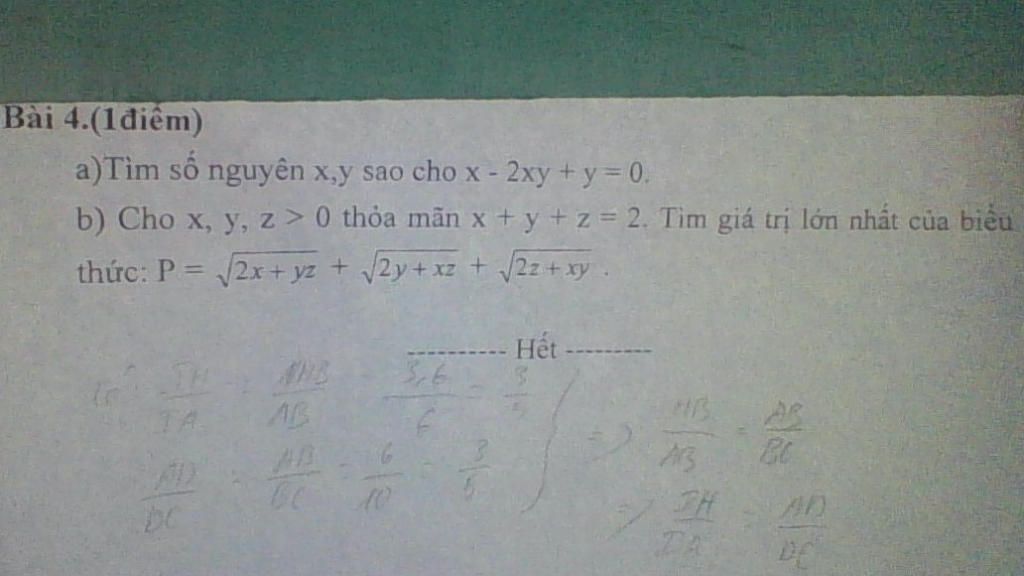 Bài 4.(1điểm)
a)Tìm số nguyên x,y sao cho x - 2xy + y = 0.
b) Cho x, y, z > 0 thỏa mãn x + y + z = 2. Tìm giá trị lớn nhất của biểu
thức: P = √(2x + yz) + √(2y + xz) + √(2z + xy) .
---------- Hết ---------
IH/IA = HB/AB = 3,6/6 = 3/5
AD/DC = AB/BC = 6/10 = 3/5
=> HB/AB = AB/BC
=> IH/IA = AD/DC